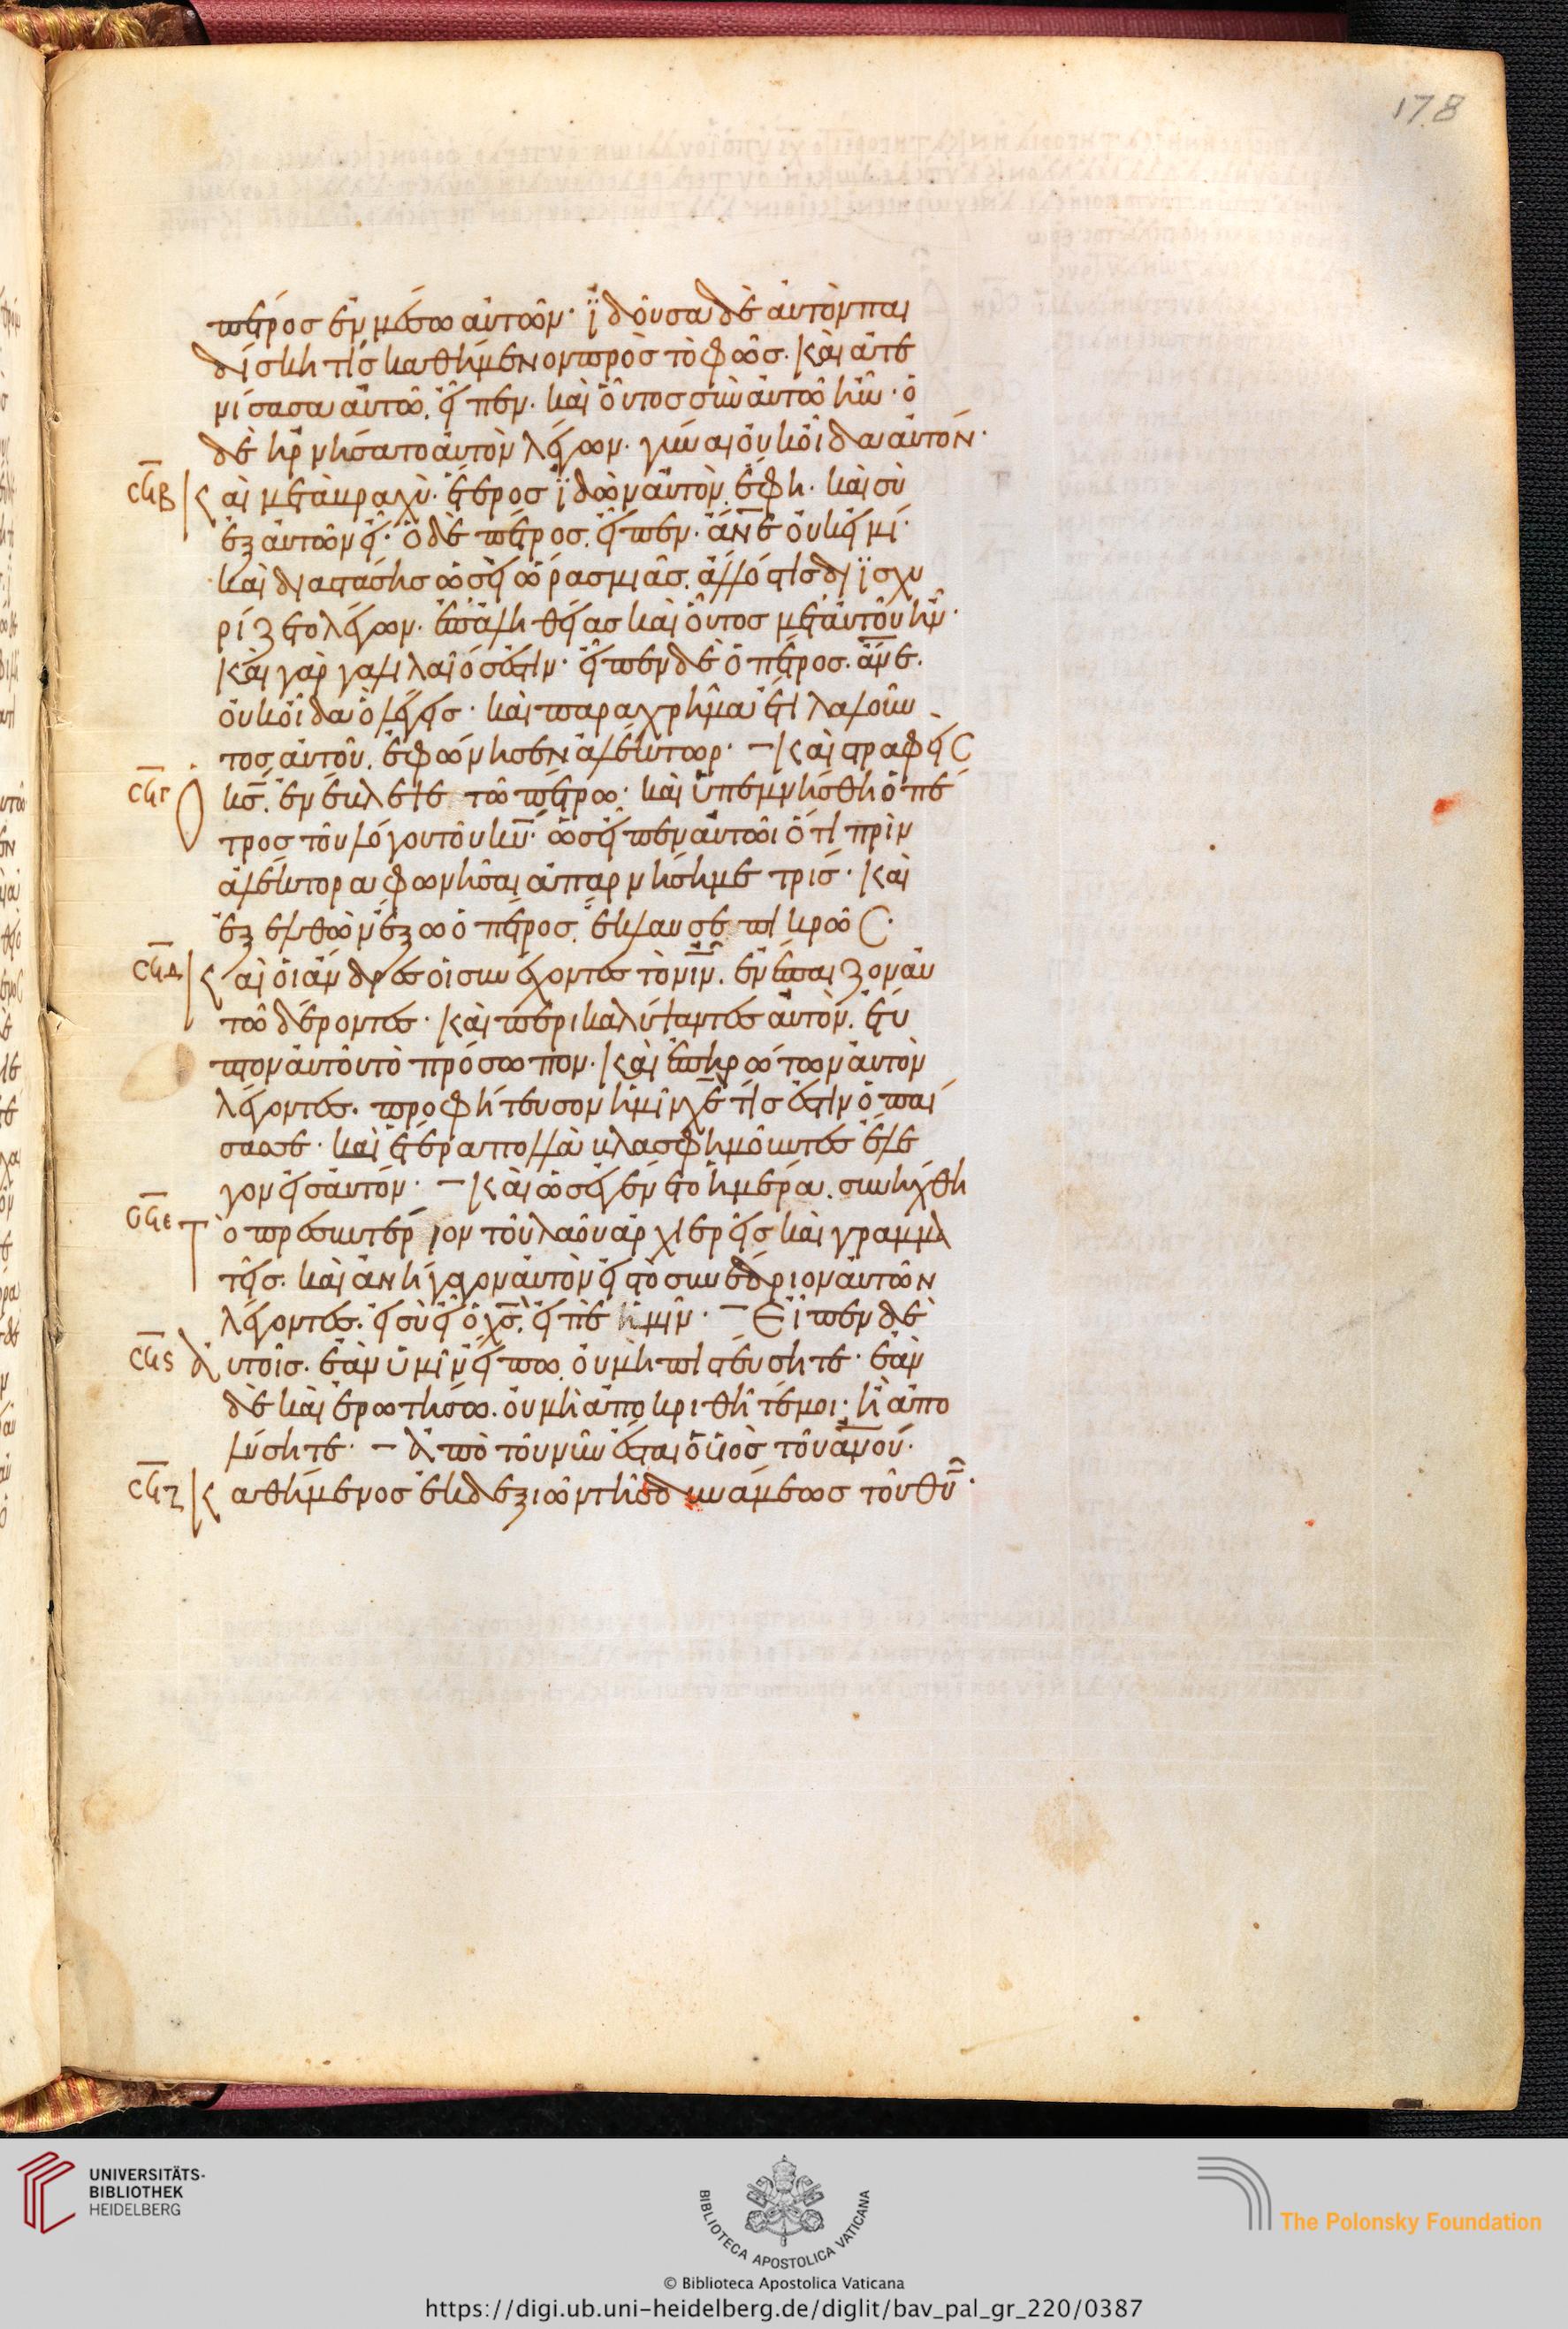 178
πέτρος ἐν μέσω αὐτῶν· ἰδοῦσα δὲ αὐτὸν παι
δίσκη τίς καθήμενον πρὸς τὸ φῶς. καὶ ἀτε
νίσασα αὐτῶ, εἶπεν. καὶ οὗτος σὺν αὐτῶ ἦν· ὁ
δὲ ἠρνήσατο αὐτὸν λέγων. γύναι οὐκ οἶδα αὐτόν·
σξβ Καὶ μετὰ βραχὺ. ἕτερος ἰδὼν αὐτὸν ἔφη. καὶ σὺ
ἐξ αὐτῶν εἶ· ὁ δὲ πέτρος. εἶπεν. ἄνε οὐκ εἰμί·
καὶ διαστάσης ὡσεὶ ὥρας μιᾶς. ἄλλός τις διϊσχυ
ρίζετο λέγων. ἐπ' ἀληθείας καὶ οὗτος μετ αὐτοῦ ἦν·
Καὶ γὰρ γαλιλαῖός ἐστιν· εἶπεν δὲ ὁ πέτρος. ἄνε.
οὐκ οἶδα ὃ λέγεις· καὶ παραχρῆμα ἔτι λαλοῦν
τος αὐτοῦ. ἐφώνησεν ἀλέκτωρ· – Καὶ στραφεὶς
σξγ Ὁ κς. ἐνέβλεψε τῶ πέτρω· καὶ ὑπεμνήσθη ὁ πέ
τρος τοῦ λόγου τοῦ κυ· ὡς εἶπεν αὐτῶι ὅτι πρὶν
ἀλέκτορα φωνῆσαι ἀπαρνήσημε τρίς· Καὶ
ἐξελθὼν ἔξω ὁ πέτρος. ἔκλαυσε πικρῶς·
σξδ Καὶ οἱ ἄνδρες οἱ συνέχοντες τὸν ιν. ἐνέπαιζον αὐ
τῶ δέροντες· Καὶ περικαλύψαντες αὐτὸν. ἔτυ
πτον αὐτοῦ τὸ πρόσωπον. Καὶ ἐπηρώτων αὐτὸν
λέγοντες. προφήτευσον ἡμῖν χε τίς ἐστιν ὁ παί
σας σε· καὶ ἕτερα πολλὰ βλασφημοῦντες ἔλε
γον εἰς αὐτόν· – Καὶ ὡς ἐγένετο ἡμέρα. συνήχθη
σξε Τὸ πρεσβυτέριον τοῦ λαοῦ ἀρχιερεῖς καὶ γραμμα
τεῖς. καὶ ἀνήγαγον αὐτὸν εἰς τὸ συνέδριον αὐτῶν
λέγοντες. εἰ σὺ εἶ ὁ χς. εἰπὲ ἡμῖν· – Εἶπεν δὲ
σξς Αὐτοῖς. ἐὰν ὑμῖν εἴπω οὐ μὴ πιστεύσητε· ἐὰν
δὲ καὶ ἐρωτήσω. οὐ μὴ ἀποκριθῆτέ μοι· ἢ ἀπο
λύσητε· – Ἀπὸ τοῦ νῦν ἔσται ὁ υἱὸς τοῦ ανου·
σξζ Καθήμενος ἐκ δεξιῶν τῆς δυνάμεως τοῦ θυ·
UNIVERSITÄTS-
BIBLIOTHEK
HEIDELBERG
BIBLIOTECA APOSTOLICA VATICANA
The Polonsky Foundation
© Biblioteca Apostolica Vaticana
https://digi.ub.uni-heidelberg.de/diglit/bav_pal_gr_220/0387